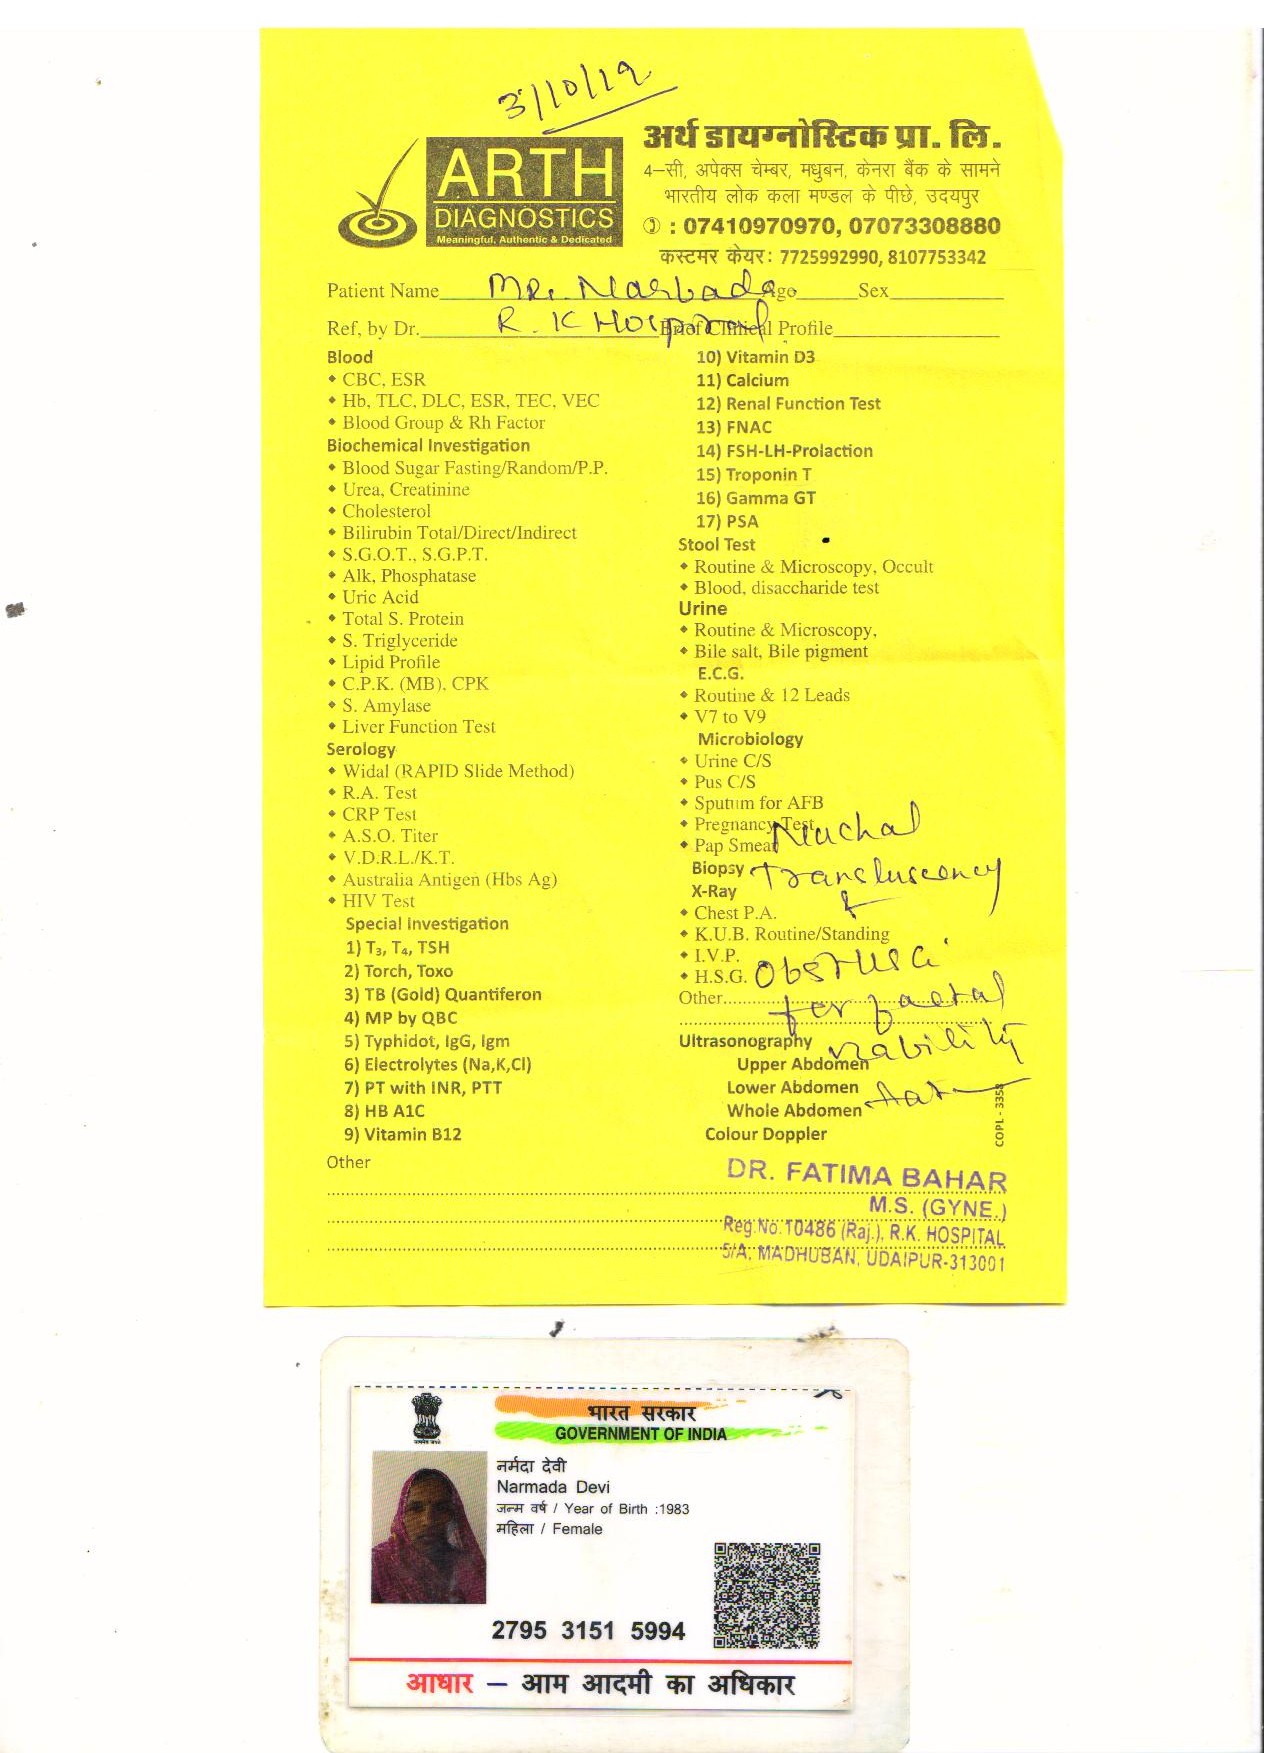 3/10/19
ARTH
DIAGNOSTICS
Meaningful, Authentic & Dedicated
अर्थ डायग्नोस्टिक प्रा. लि.
4–सी, अपेक्स चेम्बर, मधुबन, केनरा बैंक के सामने
भारतीय लोक कला मण्डल के पीछे, उदयपुर
: 07410970970, 07073308880
कस्टमर केयर: 7725992990, 8107753342
Patient Name Narbada Age Sex
Ref, by Dr. R. K Hospital Brief Clinical Profile
Blood
• CBC, ESR
• Hb, TLC, DLC, ESR, TEC, VEC
• Blood Group & Rh Factor
Biochemical Investigation
• Blood Sugar Fasting/Random/P.P.
• Urea, Creatinine
• Cholesterol
• Bilirubin Total/Direct/Indirect
• S.G.O.T., S.G.P.T.
• Alk, Phosphatase
• Uric Acid
• Total S. Protein
• S. Triglyceride
• Lipid Profile
• C.P.K. (MB), CPK
• S. Amylase
• Liver Function Test
Serology
• Widal (RAPID Slide Method)
• R.A. Test
• CRP Test
• A.S.O. Titer
• V.D.R.L./K.T.
• Australia Antigen (Hbs Ag)
• HIV Test
Special Investigation
1) T₃, T₄, TSH
2) Torch, Toxo
3) TB (Gold) Quantiferon
4) MP by QBC
5) Typhidot, IgG, Igm
6) Electrolytes (Na,K,Cl)
7) PT with INR, PTT
8) HB A1C
9) Vitamin B12
Other
10) Vitamin D3
11) Calcium
12) Renal Function Test
13) FNAC
14) FSH-LH-Prolaction
15) Troponin T
16) Gamma GT
17) PSA
Stool Test
• Routine & Microscopy, Occult
• Blood, disaccharide test
Urine
• Routine & Microscopy,
• Bile salt, Bile pigment
E.C.G.
• Routine & 12 Leads
• V7 to V9
Microbiology
• Urine C/S
• Pus C/S
• Sputum for AFB
• Pregnancy Test
• Pap Smear
Nuchal
Biopsy
Transluscency
X-Ray
• Chest P.A.
• K.U.B. Routine/Standing
• I.V.P.
• H.S.G.
Obs
Other
for faetal
viability
Ultrasonography
Upper Abdomen
Lower Abdomen
Whole Abdomen
Colour Doppler
COPL - 3358
DR. FATIMA BAHAR
M.S. (GYNE.)
Reg.No.10486 (Raj.), R.K. HOSPITAL
5/A, MADHUBAN, UDAIPUR-313001
भारत सरकार
GOVERNMENT OF INDIA
नर्मदा देवी
Narmada Devi
जन्म वर्ष / Year of Birth :1983
महिला / Female
2795 3151 5994
आधार – आम आदमी का अधिकार